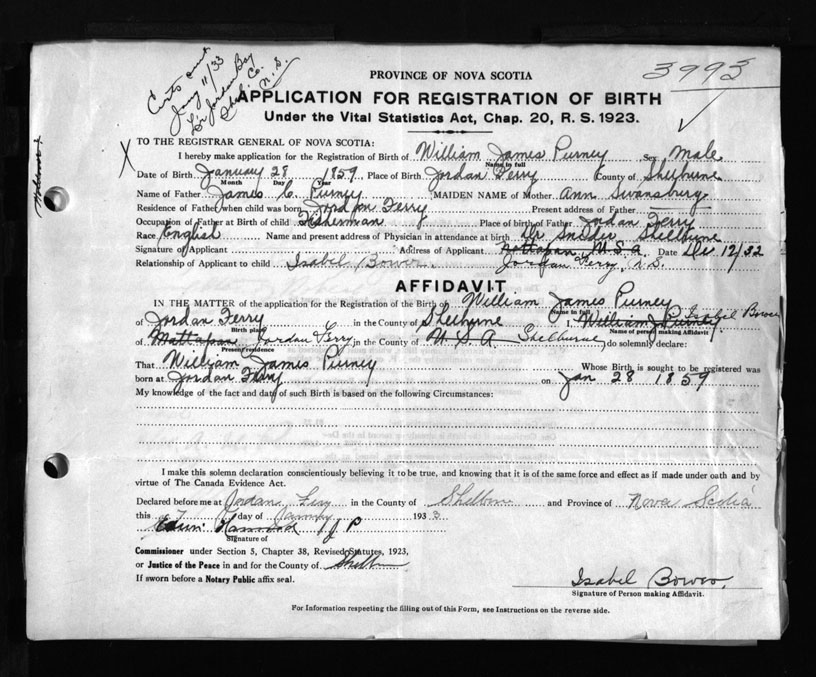 Certs sent
Jany 11/33
Jordan Bay
Shel. Co.
N. S.
3993
PROVINCE OF NOVA SCOTIA
APPLICATION FOR REGISTRATION OF BIRTH
Under the Vital Statistics Act, Chap. 20, R. S. 1923.
X TO THE REGISTRAR GENERAL OF NOVA SCOTIA:
I hereby make application for the Registration of Birth of William James Purney Sex Male
Name in full
Date of Birth January 28 1859 Place of Birth Jordan Ferry County of Shelburne
Month Day Year
Name of Father James C. Purney MAIDEN NAME of Mother Ann Swansburg
Residence of Father when child was born Jordan Ferry Present address of Father
Occupation of Father at Birth of child Fisherman Place of birth of Father Jordan Ferry
Race English Name and present address of Physician in attendance at birth Dr Snider Shelburne
Signature of Applicant Address of Applicant Mattapan U.S.A. Date Dec 12/32
Relationship of Applicant to child Isabel Bower Jordan Ferry, N.S.
AFFIDAVIT
IN THE MATTER of the application for the Registration of the Birth of William James Purney
Name in full
of Jordan Ferry in the County of Shelburne I, William J Purney Isabel Bower
Birth place Name of person making affidavit
of Mattapan Jordan Ferry in the County of U.S.A Shelburne do solemnly declare:
Present residence
That William James Purney Whose Birth is sought to be registered was
born at Jordan Ferry on Jan 28 1859
My knowledge of the fact and date of such Birth is based on the following Circumstances:
I make this solemn declaration conscientiously believing it to be true, and knowing that it is of the same force and effect as if made under oath and by
virtue of The Canada Evidence Act.
Declared before me at Jordan Ferry in the County of Shelburne and Province of Nova Scotia
this 7 day of January 1933
J P
Signature of
Commissioner under Section 5, Chapter 38, Revised Statutes, 1923,
or Justice of the Peace in and for the County of Shelburne
If sworn before a Notary Public affix seal.
Isabel Bower
Signature of Person making Affidavit.
For Information respecting the filling out of this Form, see Instructions on the reverse side.